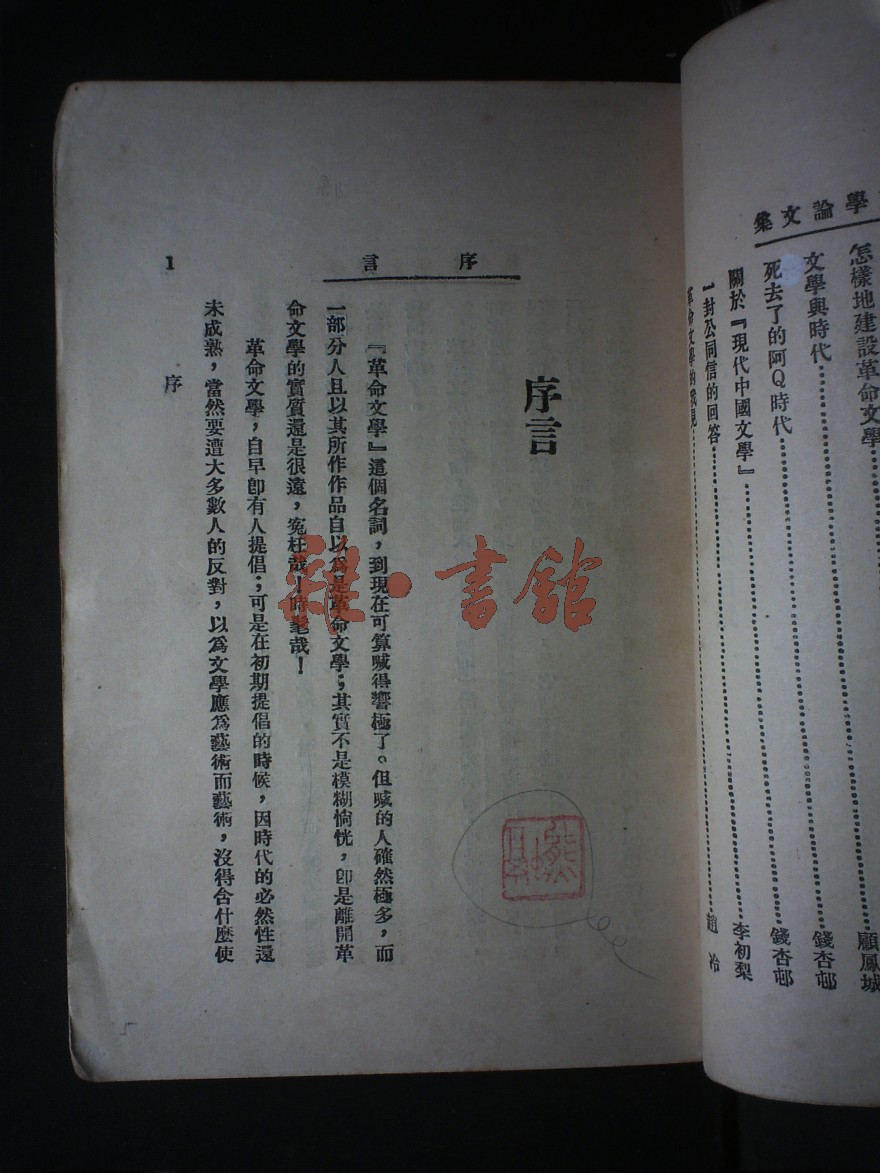 學論文集
怎樣地建設革命文學……………顧鳳城
文學與時代……………錢杏邨
死去了的阿Q時代……………錢杏邨
關於『現代中國文學』……………李初梨
一封公同信的回答……………趙冷
革命文學的我見……………
序言
序言
『革命文學』這個名詞，到現在可算喊得響極了。但喊的人確然極多，而
一部分人且以其所作作品自以爲是革命文學；其實不是模糊惝恍，卽是離開革
命文學的實質還是很遠，寃枉哉！時髦哉！
革命文學，自早卽有人提倡；可是在初期提倡的時候，因時代的必然性還
未成熟，當然要遭大多數人的反對，以爲文學應爲藝術而藝術，沒得含什麼使
序
1
雜·書館